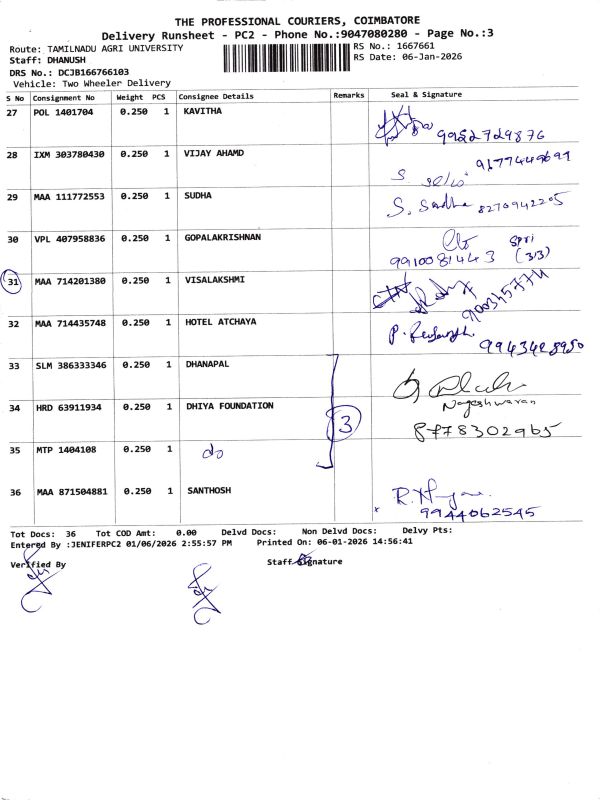 THE PROFESSIONAL COURIERS, COIMBATORE
Delivery Runsheet - PC2 - Phone No.:9047080280 - Page No.:3
Route: TAMILNADU AGRI UNIVERSITY RS No.: 1667661
Staff: DHANUSH RS Date: 06-Jan-2026
DRS No.: DCJB166766103
Vehicle: Two Wheeler Delivery
S No Consignment No Weight PCS Consignee Details Remarks Seal & Signature
27 POL 1401704 0.250 1 KAVITHA
28 IXM 303780430 0.250 1 VIJAY AHAMD
29 MAA 111772553 0.250 1 SUDHA S. Sudha 8270942205
30 VPL 407958836 0.250 1 GOPALAKRISHNAN 9910081443
31 MAA 714201380 0.250 1 VISALAKSHMI
32 MAA 714435748 0.250 1 HOTEL ATCHAYA
33 SLM 386333346 0.250 1 DHANAPAL
34 HRD 63911934 0.250 1 DHIYA FOUNDATION 3 Nageshwaran
8778302965
35 MTP 1404108 0.250 1 do
36 MAA 871504881 0.250 1 SANTHOSH
9944062545
Tot Docs: 36 Tot COD Amt: 0.00 Delvd Docs: Non Delvd Docs: Delvy Pts:
Entered By :JENIFERPC2 01/06/2026 2:55:57 PM Printed On: 06-01-2026 14:56:41
Verified By Staff Signature